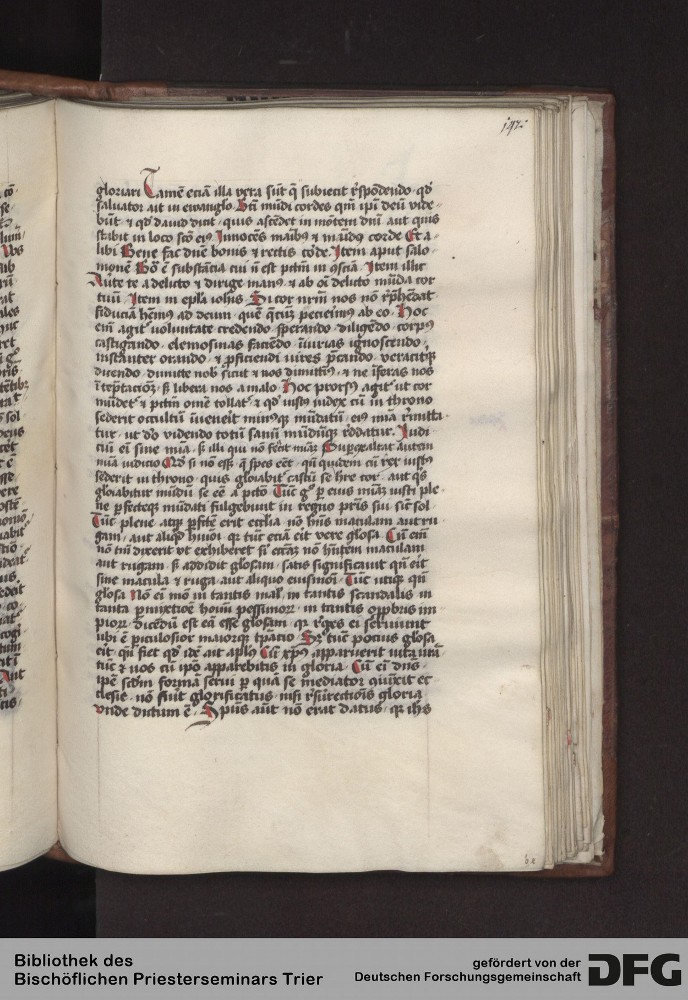 147
gloriari Tamē eciā illa vera sūt q̄ subiecit r̄spōdendo qđ
saluator ait in ewanglo Bt̄i mūdi cordes qm̄ ipi deū vide
būt ⁊ qđ dauid dicit quis ascēdet in mōtem dn̄i aut quis
stabit in loco scō eiꝰ Innocēs māibꝰ ⁊ mūdꝰ corde Et a
libi Bene fac dn̄e bonis ⁊ rectis corde Item aput salo
monē Bō ē substācia cui nō est pctm̄ in ꝯsciā Item illic
Aute te a delicto ⁊ dirige manꝰ ⁊ ab oī delicto mūda cor
tuū Item in epl̄a ioh̄is Si cor nrm̄ nos nō rp̄hēdat
fiduciā hēmꝰ ad deum quē q̄cūqꝫ pecierimꝰ ab eo Hoc
em̄ agit volūtate credendo sperando diligēdo corpꝰ
castigando elemosinas faciēdo iniurias ignoscendo
instanter orando ⁊ ꝓficiendi vires p̄cando veraciterqꝫ
dicendo dimitte nob̄ sicut ⁊ nos dimittimꝰ ⁊ ne īferas nos
ī tēptacōꝫ sꝫ libera nos a malo Hoc prorsꝰ agit ut cor
mūdetᷣ ⁊ pctm̄ omē tollatᷣ ⁊ qđ iustꝰ iudex cū in throno
sederit occultū īuenerit minusqꝫ mūdatū eiꝰ mīa r̄mitta
tur ut dō videndo totū sanū mūdūqꝫ r̄ddatur Iudi
ciū eī sine mīa sꝫ illi qui nō fecit mīaꝫ Supexaltat autem
mīa iudicio Qđ si nō esset q̄ spes eēt qn̄quidem cū rex iustꝰ
sederit in throno quis gloiabitᷣ castū se hr̄e cor aut qͥs
gloiabitur mūdū se eē a pctō Tūc gͦ ꝑ eius mīaꝫ iusti ple
ne ꝑfecteqꝫ mūdati fulgebunt in regno pris sui sic̄ sol
Tūc plene atqꝫ ꝑfēte erit eccl̄ia nō hn̄s maculam aut ru
gam aut aliqđ huiōi qꝛ tūc eciā eit vere glōsa Cū em̄
nō tm̄ dixerit vt exhiberet sꝫ ecclaꝫ nō hn̄tem maculam
aut rugam sꝫ addidit glōsam satis significauit qn̄ eit
sine macula ⁊ ruga aut aliquo eiusmōi Tūc vtiqꝫ qn̄
glōsa Nō eī mō in tantis malꝭ in tantis scandalis in
tanta ꝑmixtione hoīm pessimoꝝ in tantis opprobris im
pioꝝ dicēdū est eā esse glōsam qꝛ rͤges ei seruiunt
ubi ē ꝑiculosior maiorqꝫ tp̄tacio Sꝫ tūc pocius glōsa
eit qn̄ fiet qđ idē ait aplꝰ Cū xp̄us apparuerit vita vr̄a
tūc ⁊ vos cū ipō apparebitis in gloria Cū eī dn̄s
ipē scdm̄ formā serui ꝑ quā se mediator ꝯiūxit ec
clesie nō fuit glorificatus nisi r̄surectiōis gloria
vnde dictum ē Spūs aūt nō erat datus qꝛ ihs
Bibliothek des
Bischöflichen Priesterseminars Trier
gefördert von der
Deutschen Forschungsgemeinschaft
DFG